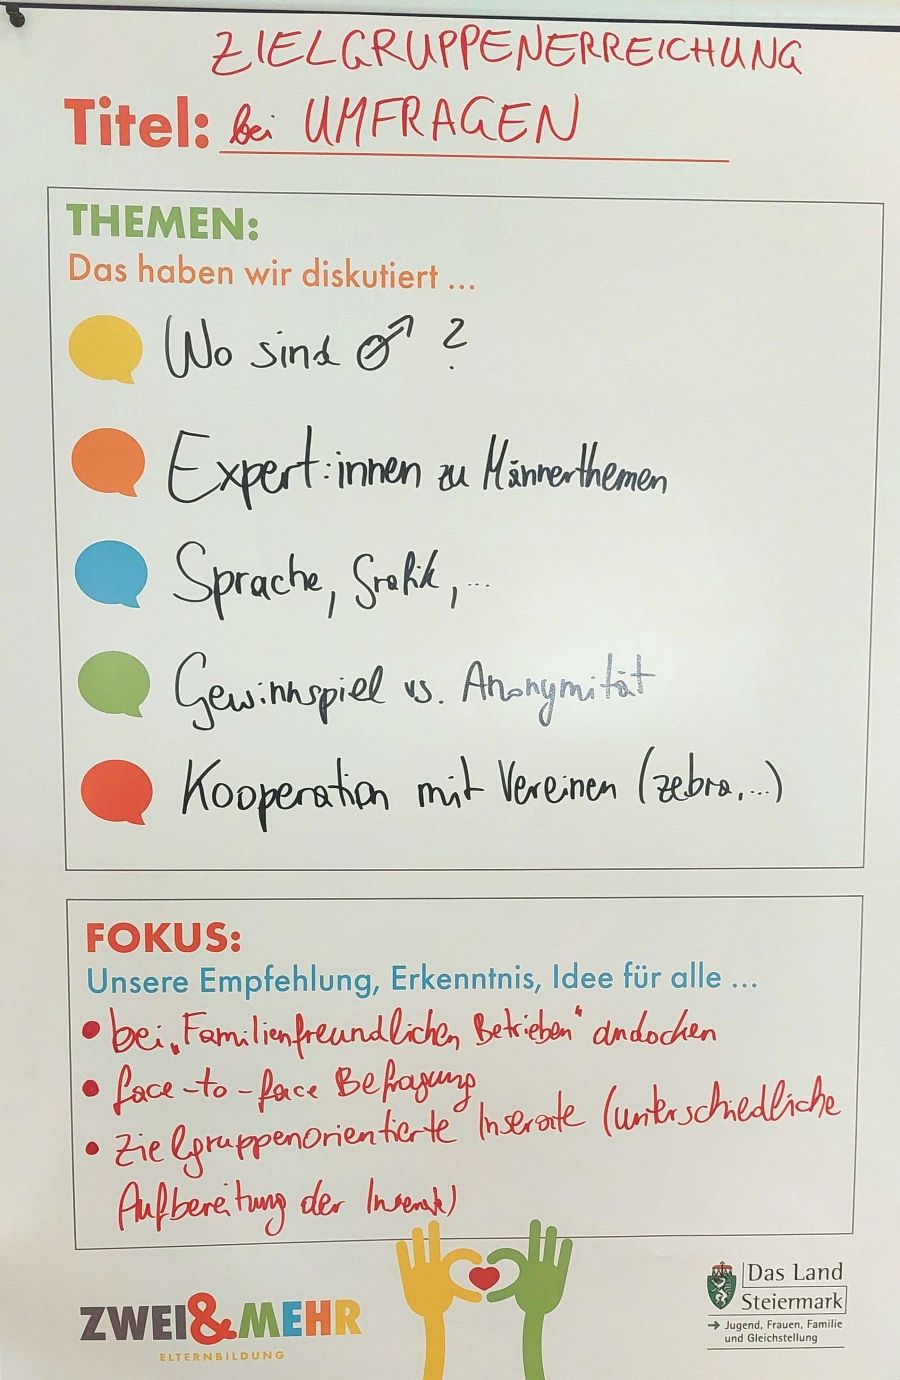 ZIELGRUPPENERREICHUNG
Titel: bei UMFRAGEN
THEMEN:
Das haben wir diskutiert ...
Wo sind ♂ ?
Expert:innen zu Männerthemen
Sprache, Grafik, ...
Gewinnspiel vs. Anonymität
Kooperation mit Vereinen (zebra,...)
FOKUS:
Unsere Empfehlung, Erkenntnis, Idee für alle ...
• bei „Familienfreundlichen Betrieben" andocken
• face-to-face Befragung
• Zielgruppenorientierte Inserate (unterschiedliche
Aufbereitung der Inserate)
ZWEI&MEHR
ELTERNBILDUNG
Das Land
Steiermark
→ Jugend, Frauen, Familie
und Gleichstellung